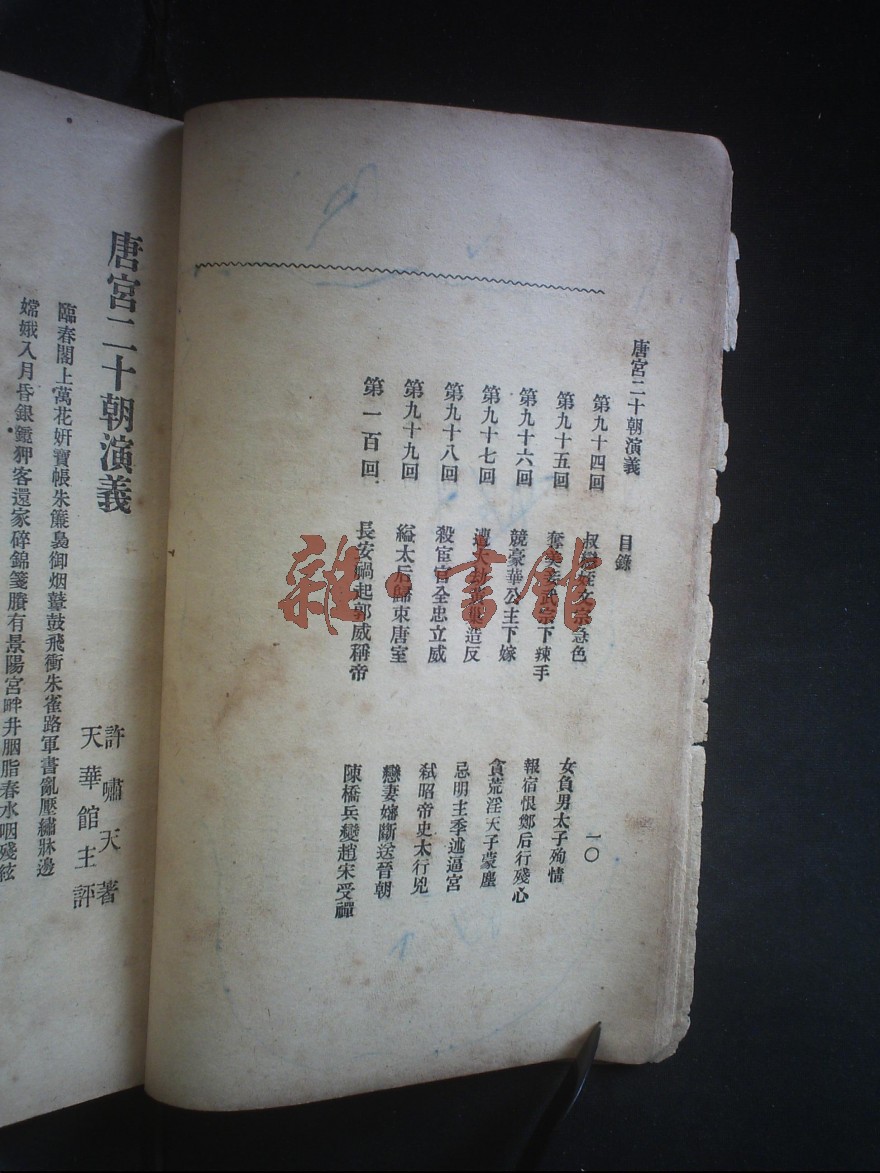 唐宮二十朝演義 目錄 一〇
第九十四回 叔戀姪文宗急色 女負男太子殉情
第九十五回 奪美妾武宗下辣手 報宿恨鄭后行殘心
第九十六回 競豪華公主下嫁 貪荒淫天子蒙塵
第九十七回 遭大劫黃巢造反 忌明主季述逼宮
第九十八回 殺宦官全忠立威 弒昭帝史太行兇
第九十九回 縊太后歸束唐室 戀妻嬸斷送晉朝
第一百回 長安禍起郭威稱帝 陳橋兵變趙宋受禪
唐宮二十朝演義
許嘯天著
天華館主評
臨春閣上萬花妍寶帳朱簾裊御烟鼙鼓飛衝朱雀路軍書亂壓繡牀邊
嫦娥入月昏銀鏡狎客還家碎錦箋賸有景陽宮畔井胭脂春水咽殘絃
雜·書館